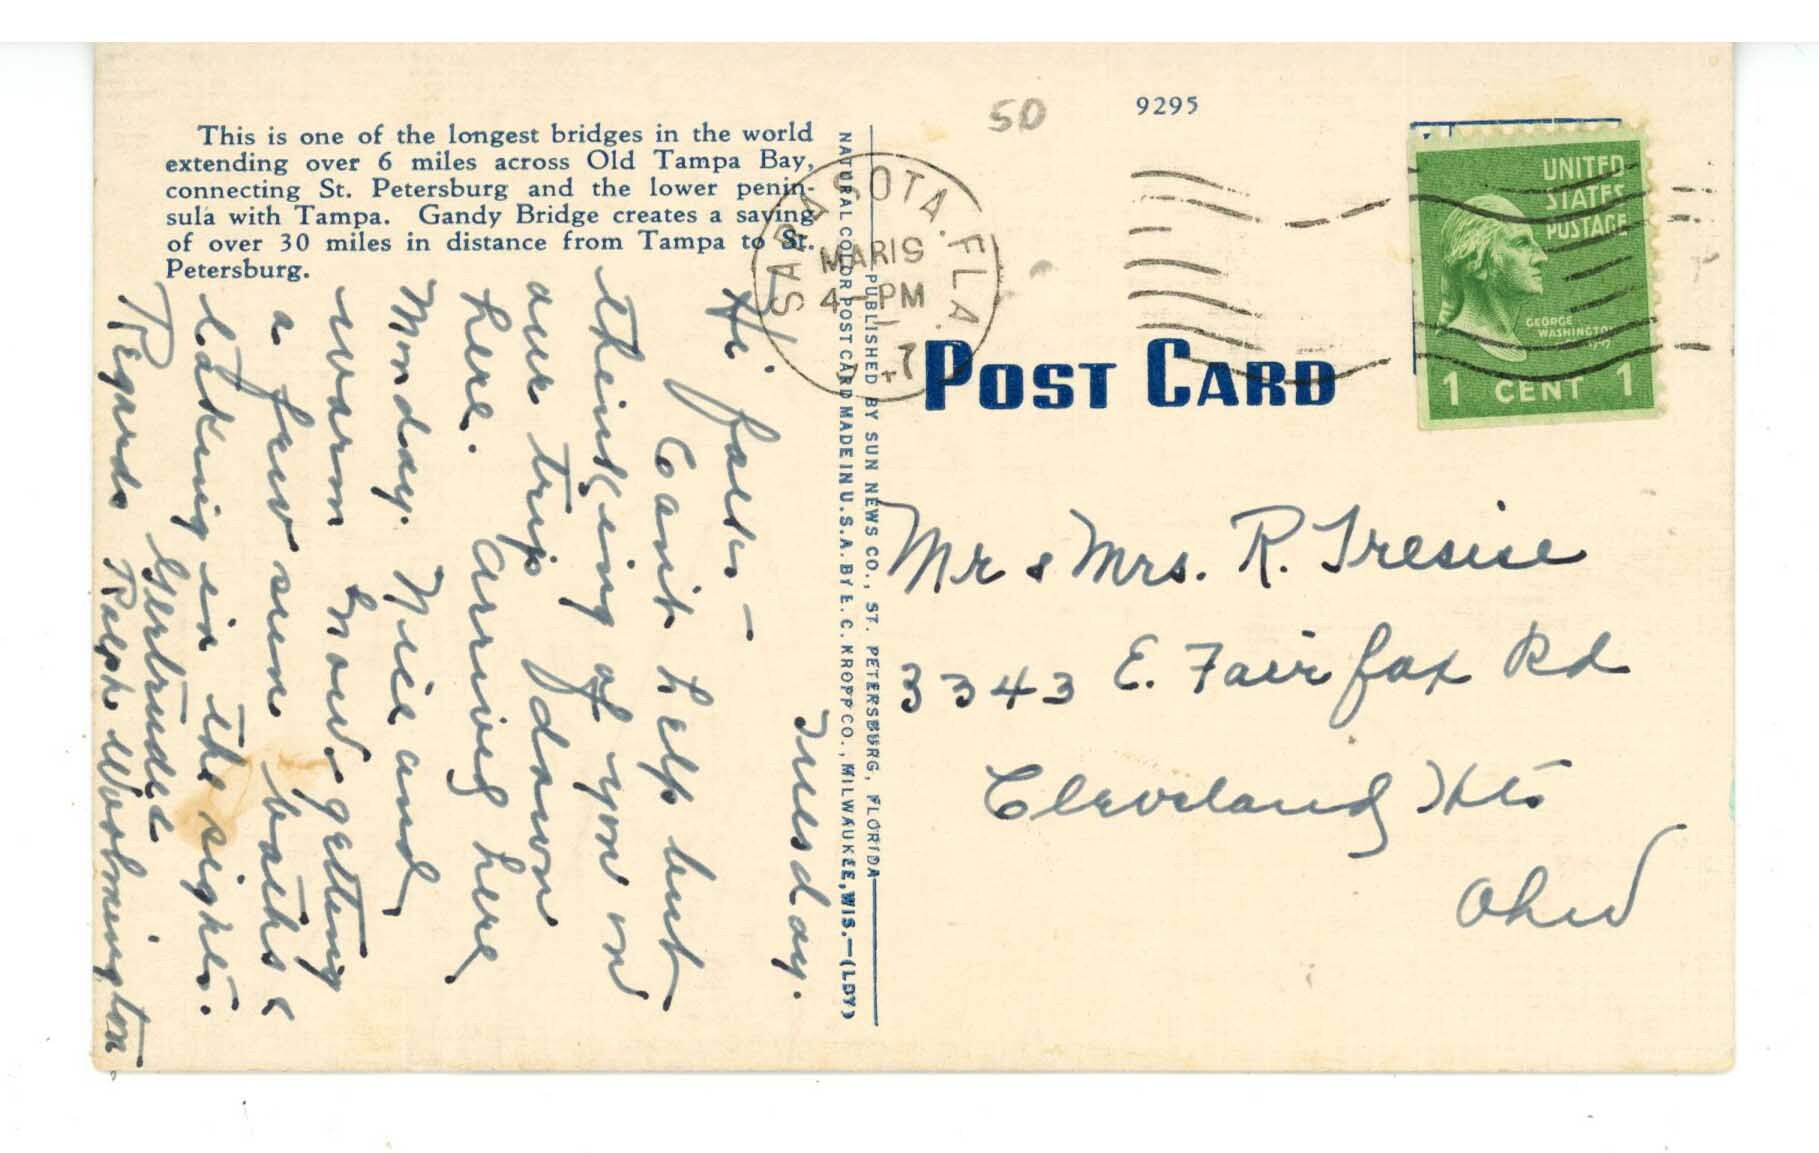 This is one of the longest bridges in the world
extending over 6 miles across Old Tampa Bay,
connecting St. Petersburg and the lower penin-
sula with Tampa. Gandy Bridge creates a saving
of over 30 miles in distance from Tampa to St.
Petersburg.
Tuesday.
Hi folks –
Can't help but
thinking of you on
our trip down
here. Arrived here
Monday. Nice and
warm now. getting
a few sun baths &
taking in the sights.
Regards Gertrude &
Ralph Wormington
PUBLISHED BY SUN NEWS CO., ST. PETERSBURG, FLORIDA
NATURAL COLOR POST CARD MADE IN U.S.A. BY E. C. KROPP CO., MILWAUKEE, WIS.—(LDY)
50
9295
SARASOTA. FLA.
MAR 19
4 – PM
POST CARD
UNITED
STATES
POSTAGE
GEORGE
WASHINGTON
1 CENT 1
Mr & Mrs. R. Tresise
3343 E. Fairfax Rd
Cleveland Hts
Ohio